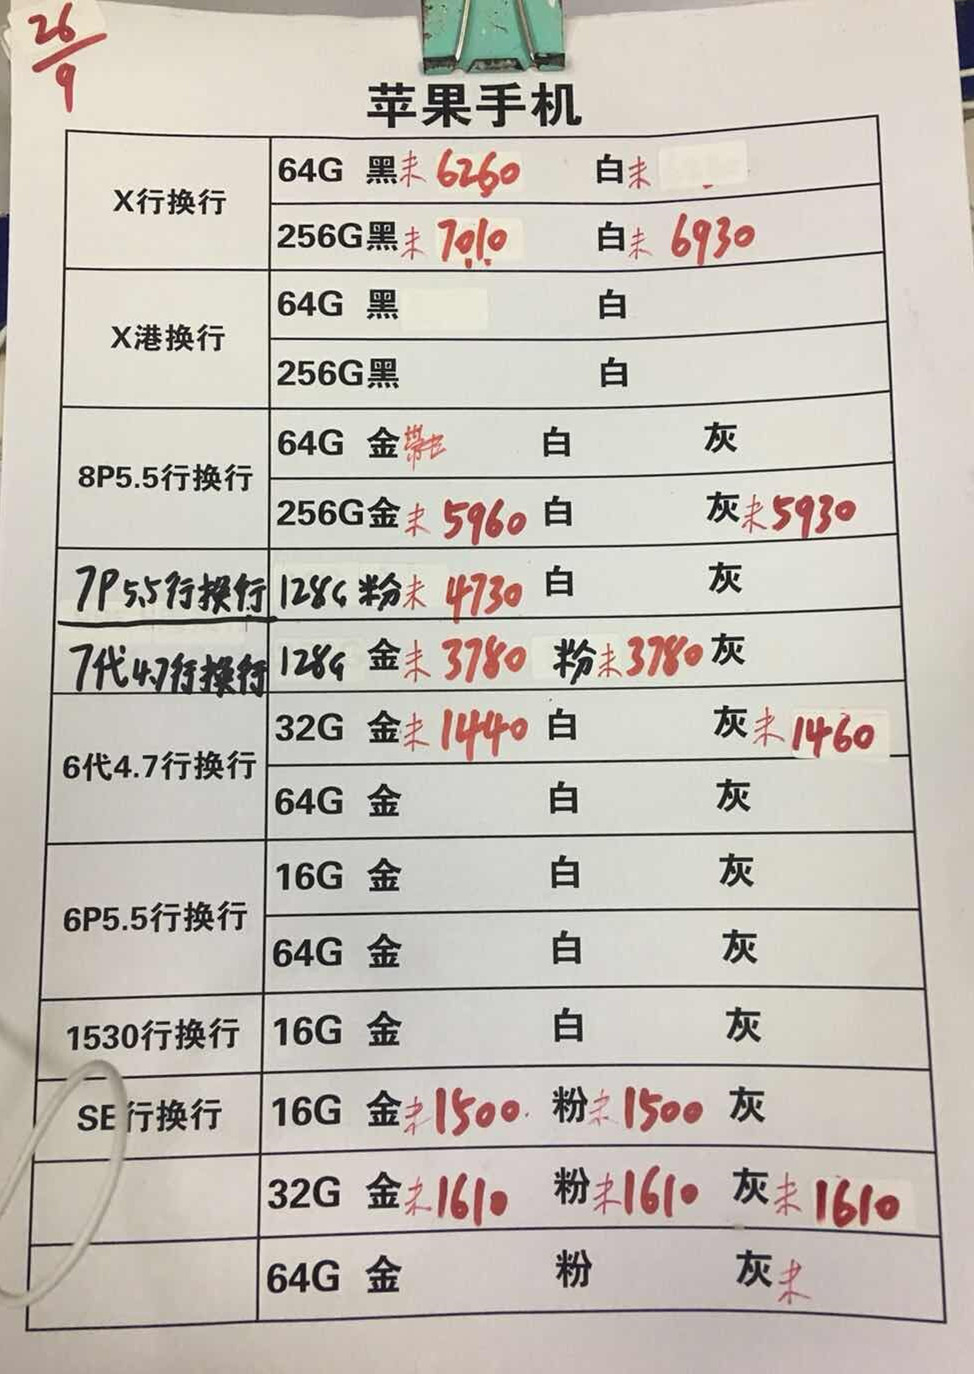 26/9
苹果手机
X行换行
64G 黑未 6260 白未
256G黑未 7010 白未 6930
X港换行
64G 黑 白
256G黑 白
8P5.5行换行
64G 金 白 灰
256G金未 5960 白 灰未5930
7P5.5行换行 128G 粉未 4730 白 灰
7代4.7行换行 128G 金未 3780 粉未3780 灰
6代4.7行换行
32G 金未 1440 白 灰未 1460
64G 金 白 灰
6P5.5行换行
16G 金 白 灰
64G 金 白 灰
1530行换行 16G 金 白 灰
SE行换行 16G 金未1500 粉未1500 灰
32G 金未1610 粉未1610 灰未1610
64G 金 粉 灰未